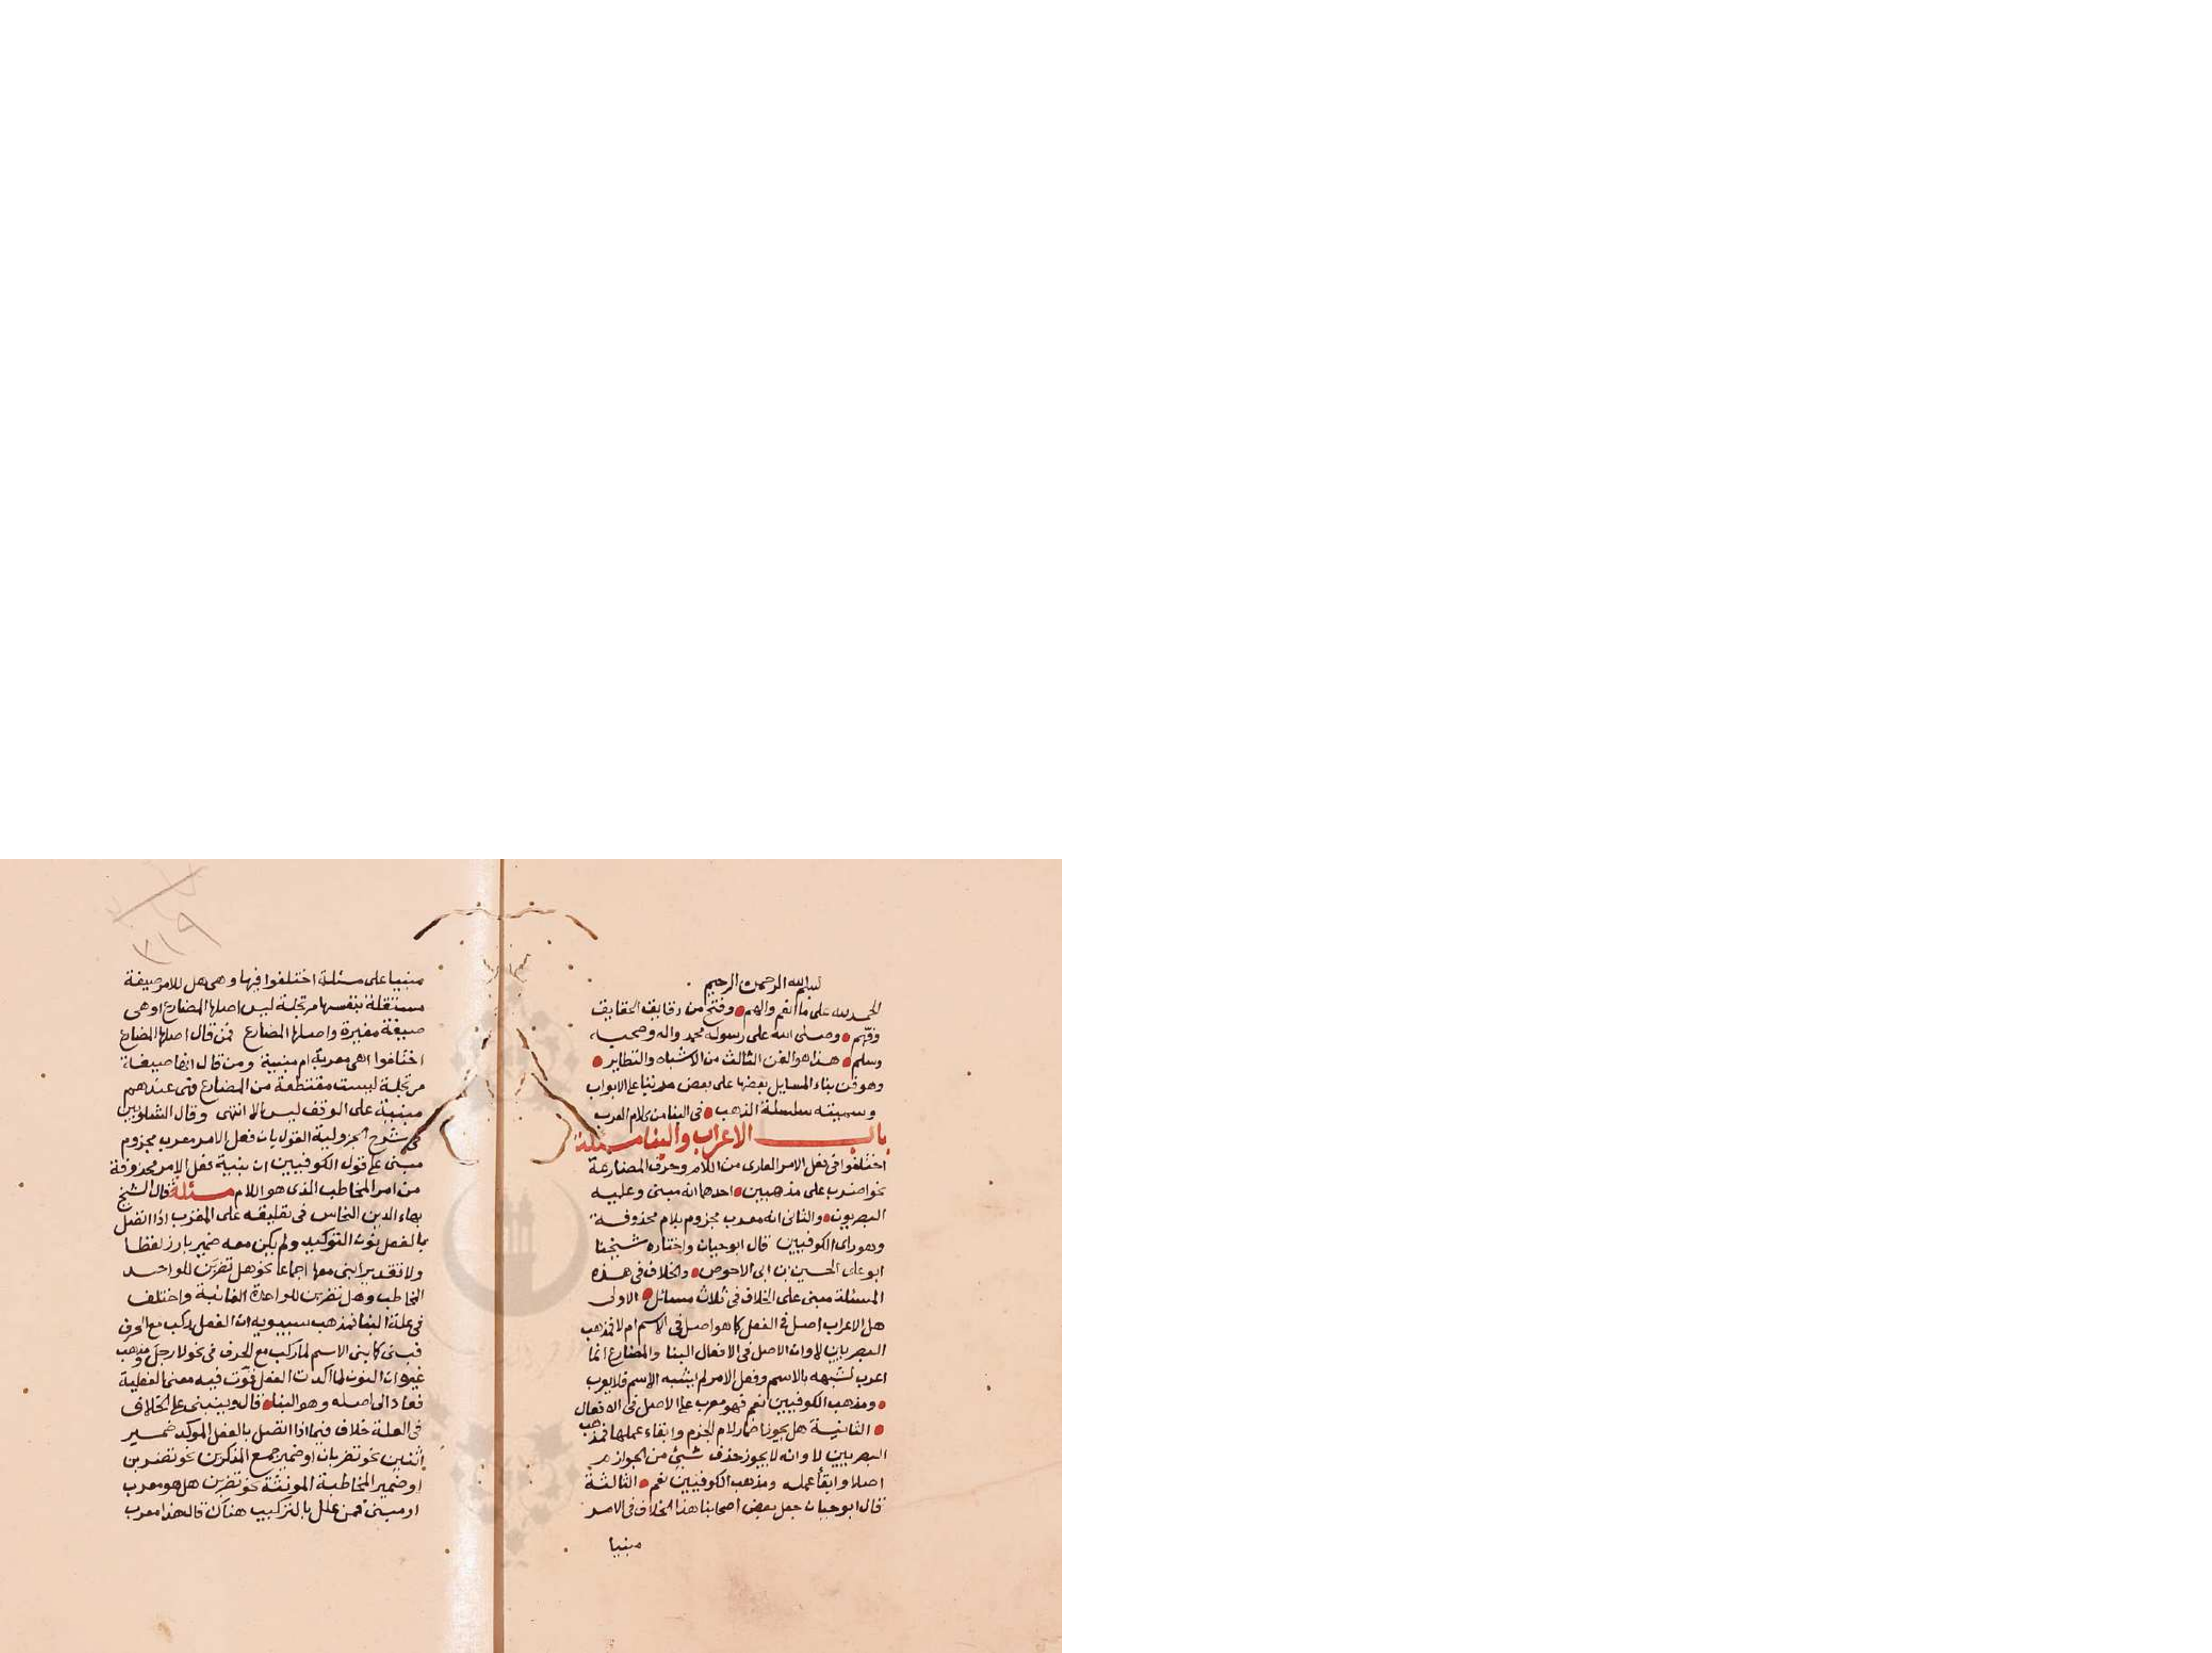 بسم الله الرحمن الرحيم
الحمد لله على ما انعم والهم وفتح من دقايق الحقايق
وفهم وصلى الله على رسوله محمد واله وصحبه
وسلم هذا هو الفن الثالث من الاشباه والنظاير
وهو فن بناء المسايل بعضها على بعض مرتبا على الابواب
وسميته سلسلة الذهب فى البنا من كلام العرب
باب الاعراب والبنا مسئلة
اختلفوا فى فعل الامر العارى من اللام وحرف المضارعة
نحو اضرب على مذهبين احدهما انه مبنى وعليه
البصريون والثانى انه معرب مجزوم بلام محذوفة
وهو راى الكوفيين قال ابو حيان واختاره شيخنا
ابو على الحسين بن ابى الاحوص والخلاف فى هذه
المسئلة مبنى على الخلاف فى ثلاث مسائل الاولى
هل الاعراب اصل فى الفعل كما هو اصل فى الاسم ام لا فمذهب
البصريين لا وان الاصل فى الافعال البنا والمضارع انما
اعرب لشبهه بالاسم وفعل الامر لم يشبه الاسم فلا يعرب
ومذهب الكوفيين نعم فهو معرب على الاصل فى الافعال
الثانية هل يجوز اضمار لام الجزم وابقاء عملها فمذهب
البصريين لا وانه لا يجوز حذف شئ من الجوازم
اصلا وابقا عمله ومذهب الكوفيين نعم الثالثة
قال ابو حيان جعل بعض اصحابنا هذا الخلاف فى الامر
مبنيا
مبنيا على مسئلة اختلفوا فيها وهى هل للامر صيغة
مستقلة بنفسها مرتجلة ليس اصلها المضارع او هى
صيغة مغيرة واصلها المضارع فمن قال اصلها المضارع
اختلفوا اهى معربة ام مبنية ومن قال انها صيغة
مرتجلة ليست مقتطعة من المضارع فهى عندهم
مبنية على الوقف ليس الا انتهى وقال الشلوبين
فى شرح الجزولية القول بان فعل الامر معرب مجزوم
مبنى على قول الكوفيين ان بنية فعل الامر محذوفة
من امر المخاطب الذى هو اللام مسئلة قال الشيخ
بهاء الدين النحاس فى تعليقه على المقرب اذا اتصل
بالفعل نون التوكيد ولم يكن معه ضمير بارز لفظا
ولا تقديرا بنى معها اجماعا نحو هل تضربن للواحد
المخاطب وهل تضربن للواحدة الغائبة واختلف
فى علة البنا فمذهب سيبويه ان الفعل ركب مع الحرف
فبنى كما بنى الاسم لما ركب مع الحرف فى نحو لا رجل ومذهب
غيره ان النون لما اكدت الفعل قوت فيه معنى الفعلية
فعاد الى اصله وهو البنا قال وينبنى على الخلاف
فى العلة خلاف فيما اذا اتصل بالفعل الموكد ضمير
اثنين نحو تضربان او ضمير جمع المذكرين نحو تضربن
او ضمير المخاطبة المونثة نحو تضربن هل هو معرب
او مبنى فمن علل بالتركيب هناك قال هذا معرب
٣١٩